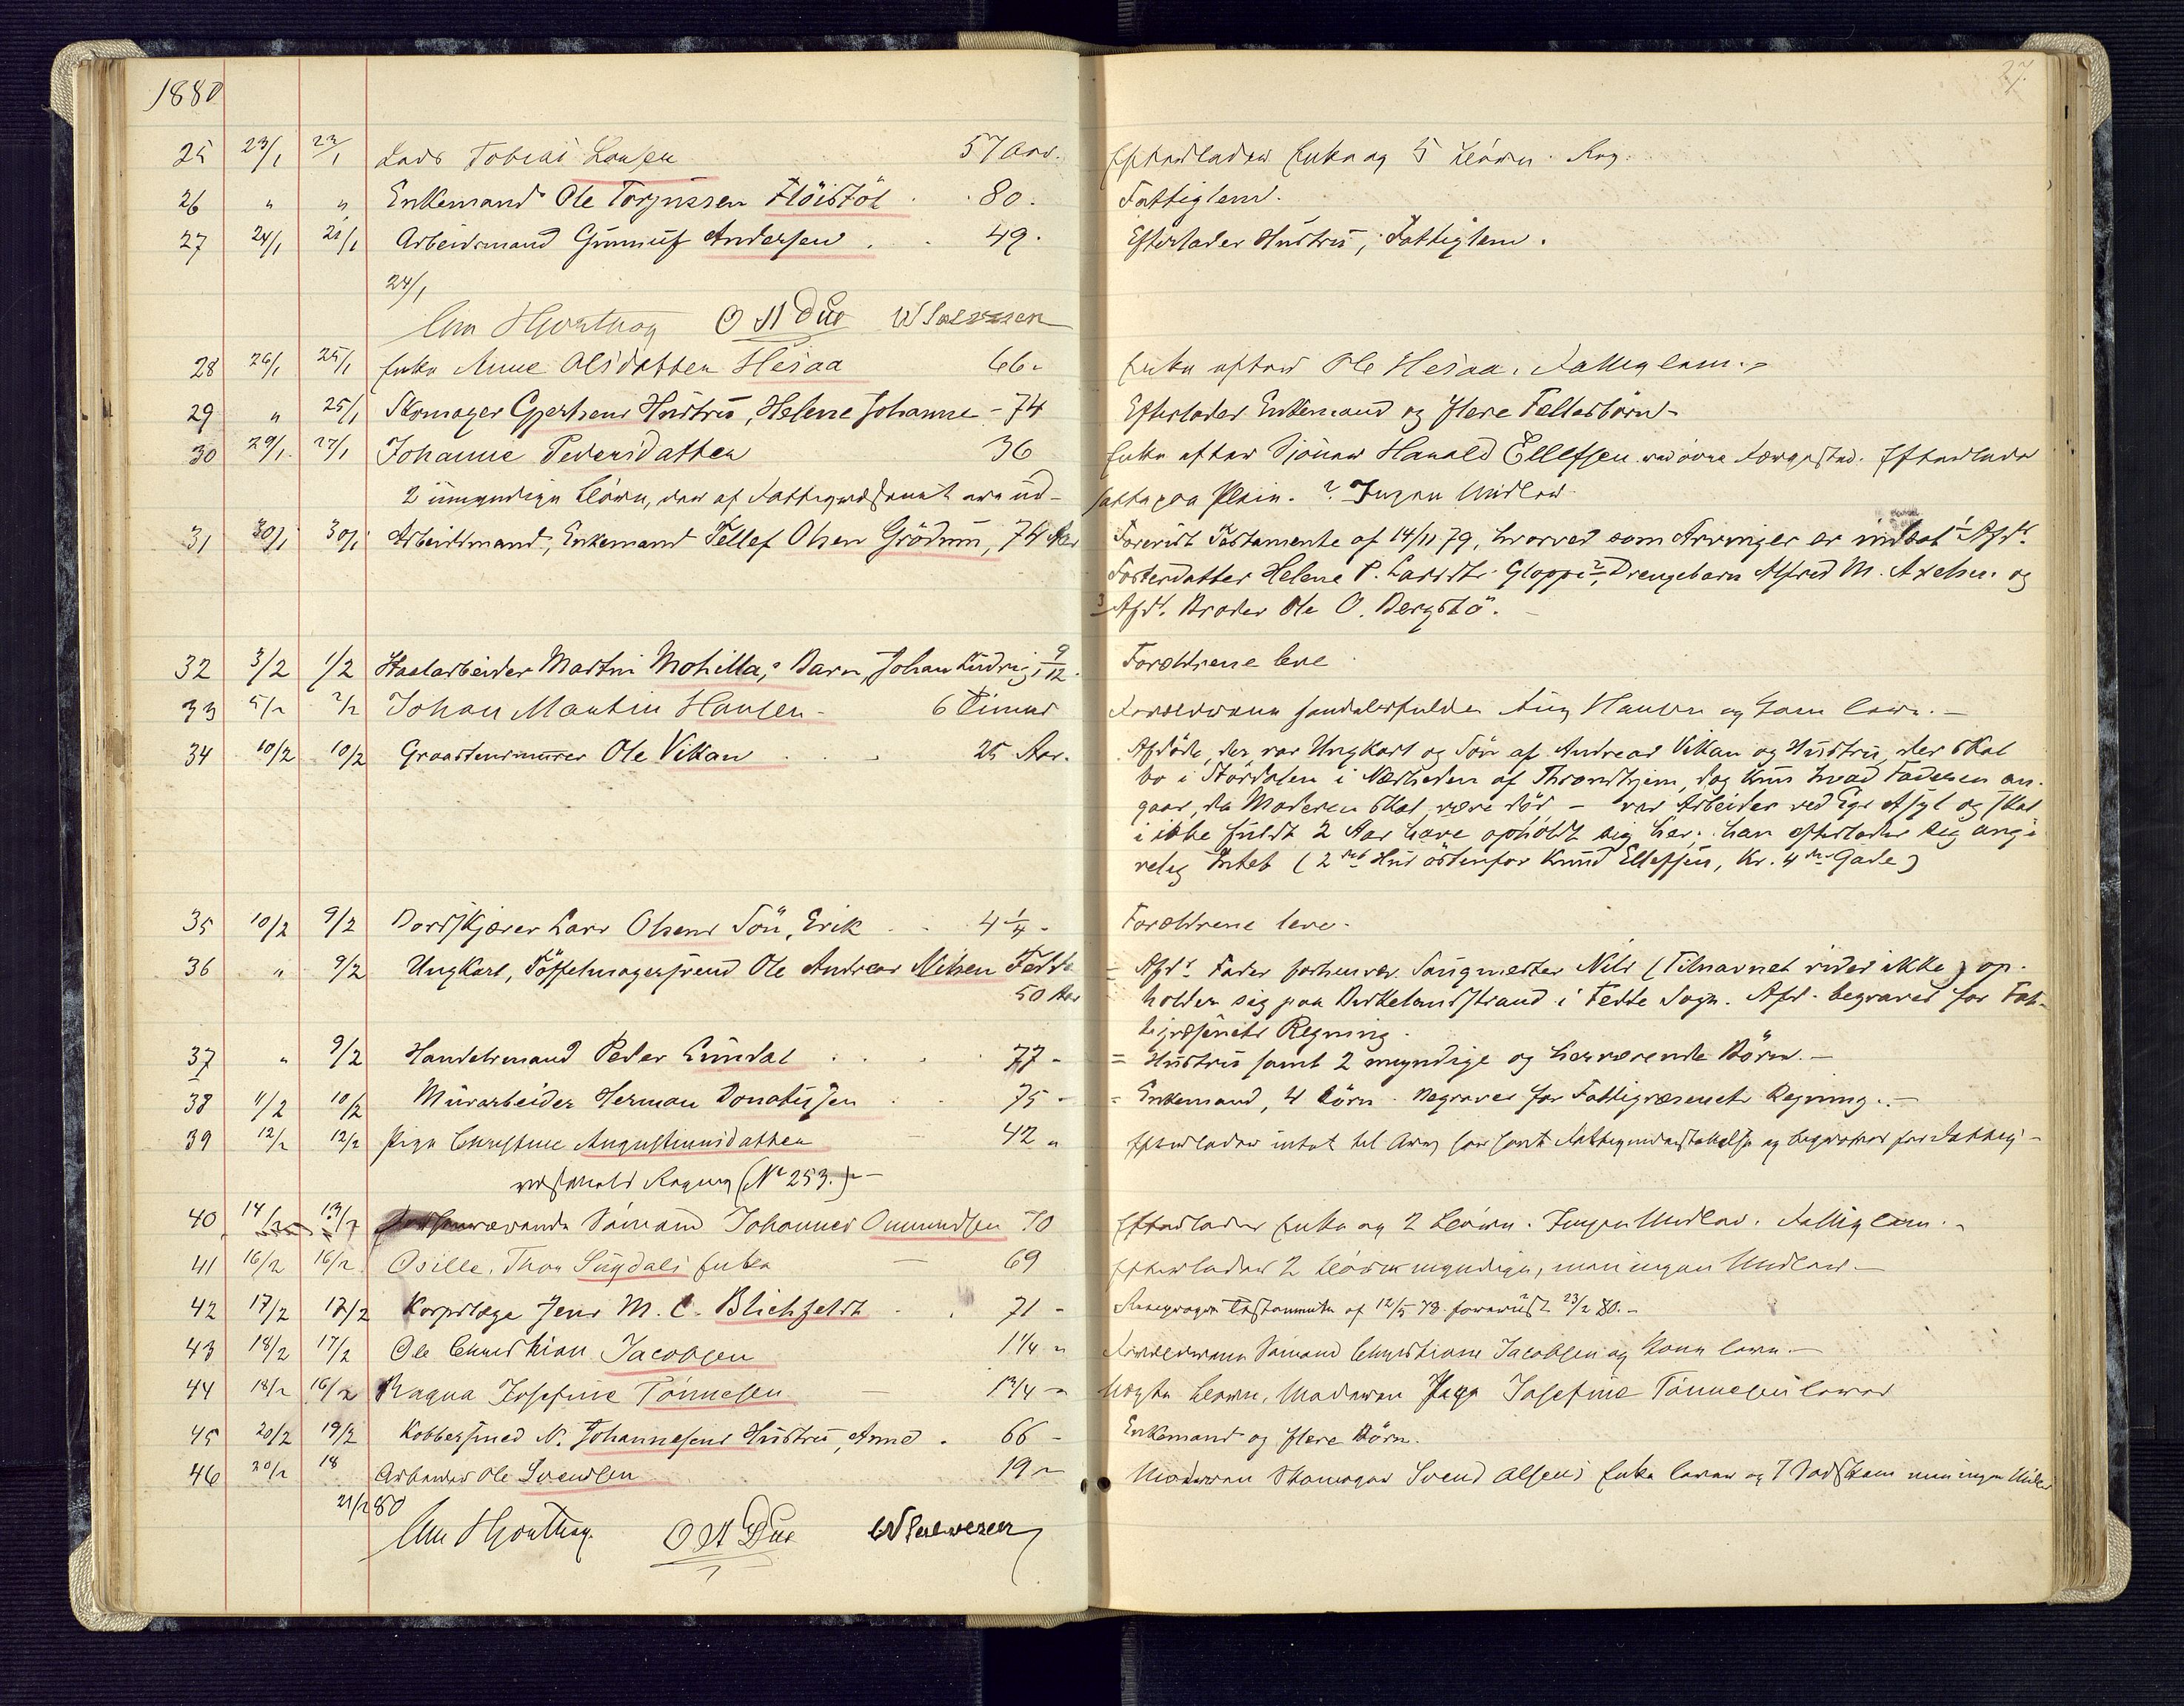 1880
27.
25 23/1 23/1 Lads Tobias Larsen 57 Aar. Efterlader Enke og 5 Børn.
26 " " Enkemand Ole Torjussen Fløistøl 80. Fattiglem.
27 24/1 21/1 Arbeidsmand Gunnuf Andersen 49. Efterlader Hustru, Fattiglem.
24/1
Chr Hjorthøg O A Due
28 26/1 25/1 Enke Anne Olsdatter Hesaa 66 " Enke efter Ole Hesaa. Fattiglem.
29 " 25/1 Skomager Gjertsens Hustru, Helene Johanne - 74 Efterlader Enkemand og flere Fellesbörn -
30 29/1 27/1 Johanne Pedersdatter 36 Enke efter Sjömand Harald Ellefsen Efterlader
2 umyndige Börn, der af Fattigvæsenet ere ud-
satte paa Pleie. Ingen Midler
31 30/1 30/1 Arbeidsmand, Enkemand Tellef Olsen Grödum, 74 Aar Forevist Testamente af 14/11 79, hvorved som Arvinger er indsat 1 Afdr.
Fosterdatter Helene P. Larsdtr. Gloppe 2, Drengebarn Alfred M. Axelsen og
3 Afdr. Broder Ole O. Bergstö.
32 3/2 1/2 Martin Mohilla's Barn, Johan Ludvig, 9/12. Forældrene leve
33 5/2 2/2 Johan Martin Hansen - 6 Timer Forældrene Aug Hansen og Kone leve. -
34 10/2 10/2 Graastensmurer Ole Vikan 25 Aar. Afdöde, der var Ungkarl og Sön af Andreas Vikan og Hustru, der skal
bo i Stördalen i Nærheden af Throndhjem, dog kun hvad Faderen an-
gaar, da Moderen skal være död, - var Arbeider ved Egs Asyl og skal
i ikke fuldt 2 Aar have opholdt sig her; han efterlader sig angi-
velig Intet (2det Hus östenfor Knud Ellefsen, Kr. 4de Gade)
35 10/2 9/2 Bordskjærer Lars Olsens Sön, Erik 4 1/4 - Forældrene leve -
36 " 9/2 Ungkarl, Töffelmagersvend Ole Andreas Nilsen Fedde
50 Aar
= Afdr. Fader forhenvær. Saugmester Nils (Tilnavnet vides ikke) op-
holder sig paa Birkelandstrand i Fedde Sogn. Afd. begraves for Fat-
tigvæsenets Regning.
37 " 9/2 Handelsmand Peder Lundal 77 - = Hustru samt 2 myndige og herværende Börn. -
38 11/2 10/2 Murarbeider Herman Donatisen 75 - = Enkemand, 4 Börn. Begraves for Fattigvæsenets Regning. -
39 12/2 12/2 Pige Christine Augustinusdatter - 42 " Efterlader intet til Arv, har havt Fattigunderstöttelse og begraves for Fattig-
væsenets Regning (No 253.) -
40 14/2 13/2 Forhenværende Sömand Johannes Ommundsen 70 Efterlader Enke og 2 Börn. Ingen Midler. Fattiglem. -
41 16/2 16/2 Osille, Thor Sugdals Enke - 69 Efterlader 2 Börn myndige, men ingen Midler -
42 17/2 17/2 Korpslæge Jens M. C. Blichfeldt 71 - Testamente af 12/5 78 forevist 23/2 80. -
43 18/2 17/2 Ole Christian Jacobsen 1 1/4 " Forældrene Sömand Christian Jacobsen og Kone leve. -
44 18/2 16/2 Ragna Josefine Tönnesen - 1 3/4 - Uægte Barn, Moderen Pige Josefine Tönnesen lever
45 20/2 19/2 Kobbersmed N. Johannesens Hustru, Anne 66 - Enkemand og flere Börn.
46 20/2 18 Arbeider Ole Svendsen 19 - Moderen Skomager Svend Olsens Enke lever og 7 Södskende men ingen Midler
21/2 80
Chr Hjorthøg. O A Due